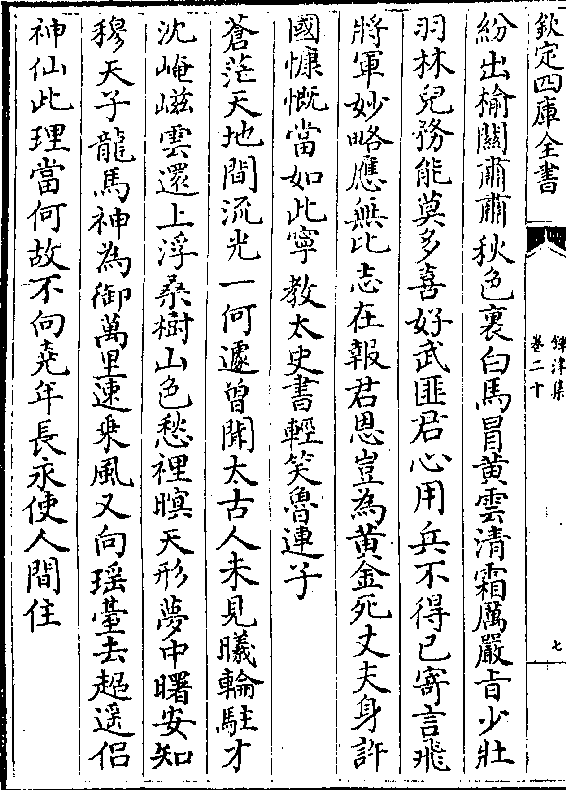 欽定四庫全書
鐔津集
卷二十
七
紛出榆關肅肅秋色裏白馬冒黄雲清霜厲嚴㫖少壯
羽林兒務能莫多喜好武匪君心用兵不得已寄言飛
將軍妙略應無比志在報君恩豈為黄金死丈夫身許
國慷慨當如此寧教太史書輕笑魯連子
蒼茫天地間流光一何遽曾聞太古人未見曦輪駐才
沈崦嵫雲還上浮桑樹山色愁裡暝天形夢中曙安知
穆天子龍馬神為御萬里速乗風又向瑶臺去超遥侣
神仙此理當何故不向堯年長永使人間住